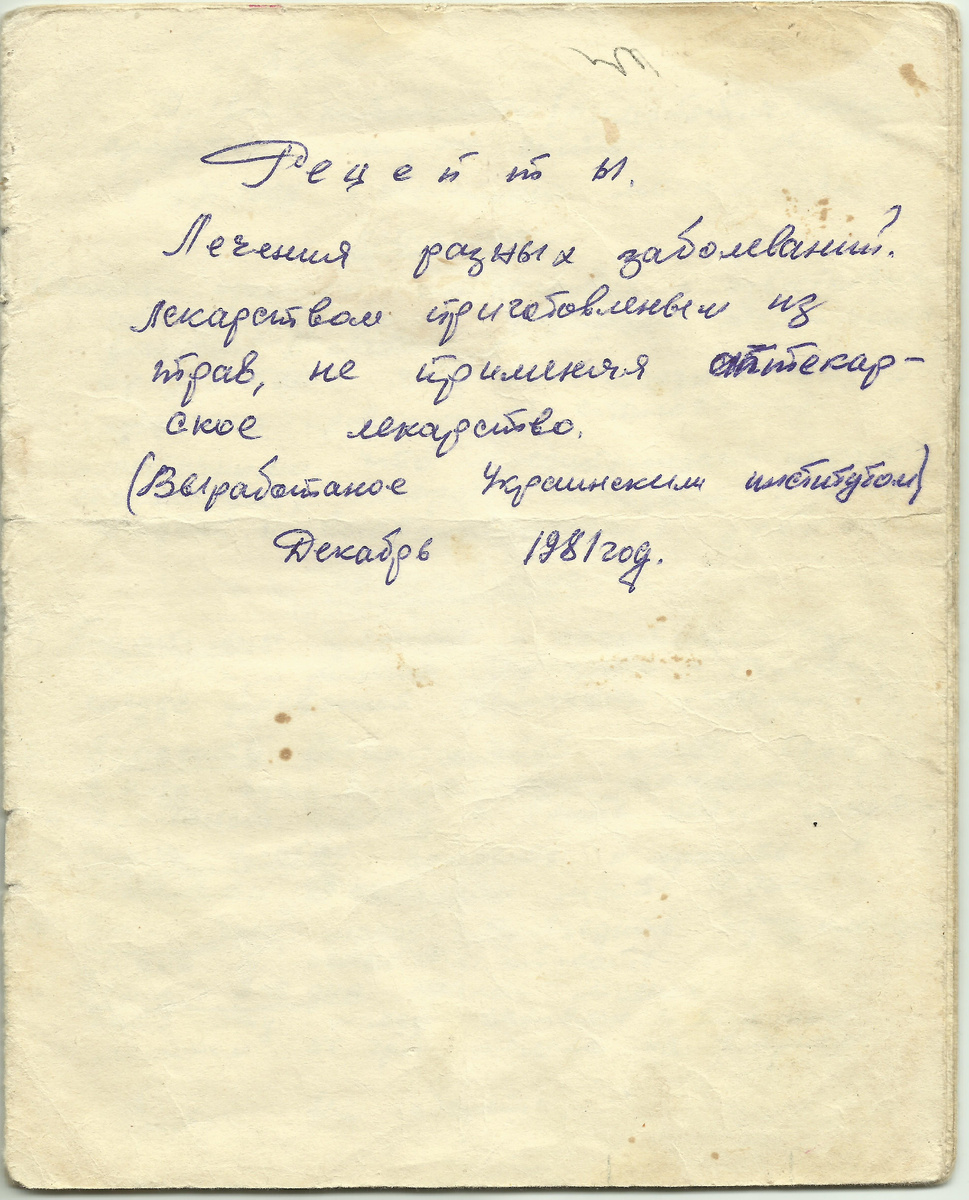 Рецепты.
Лечения разных заболеваний.
лекарством приготовленым из
трав, не применяя аптекар-
ское лекарство.
(Выработаное Украинским институтом)
Декабрь 1981 год.